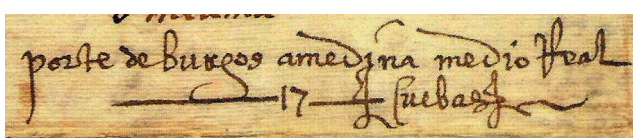 porte de burgos amedina medio Real
17 Cuebas